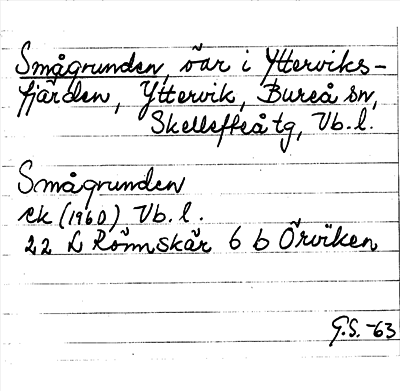 Smågrunden, öar i Ytterviks-
fjärden, Yttervik, Bureå sn,
Skellefteå tg, Vb. l.
Smågrunden
ek (1960) Vb. l.
22 L Rönnskär 6 b Örviken
G.S. -63